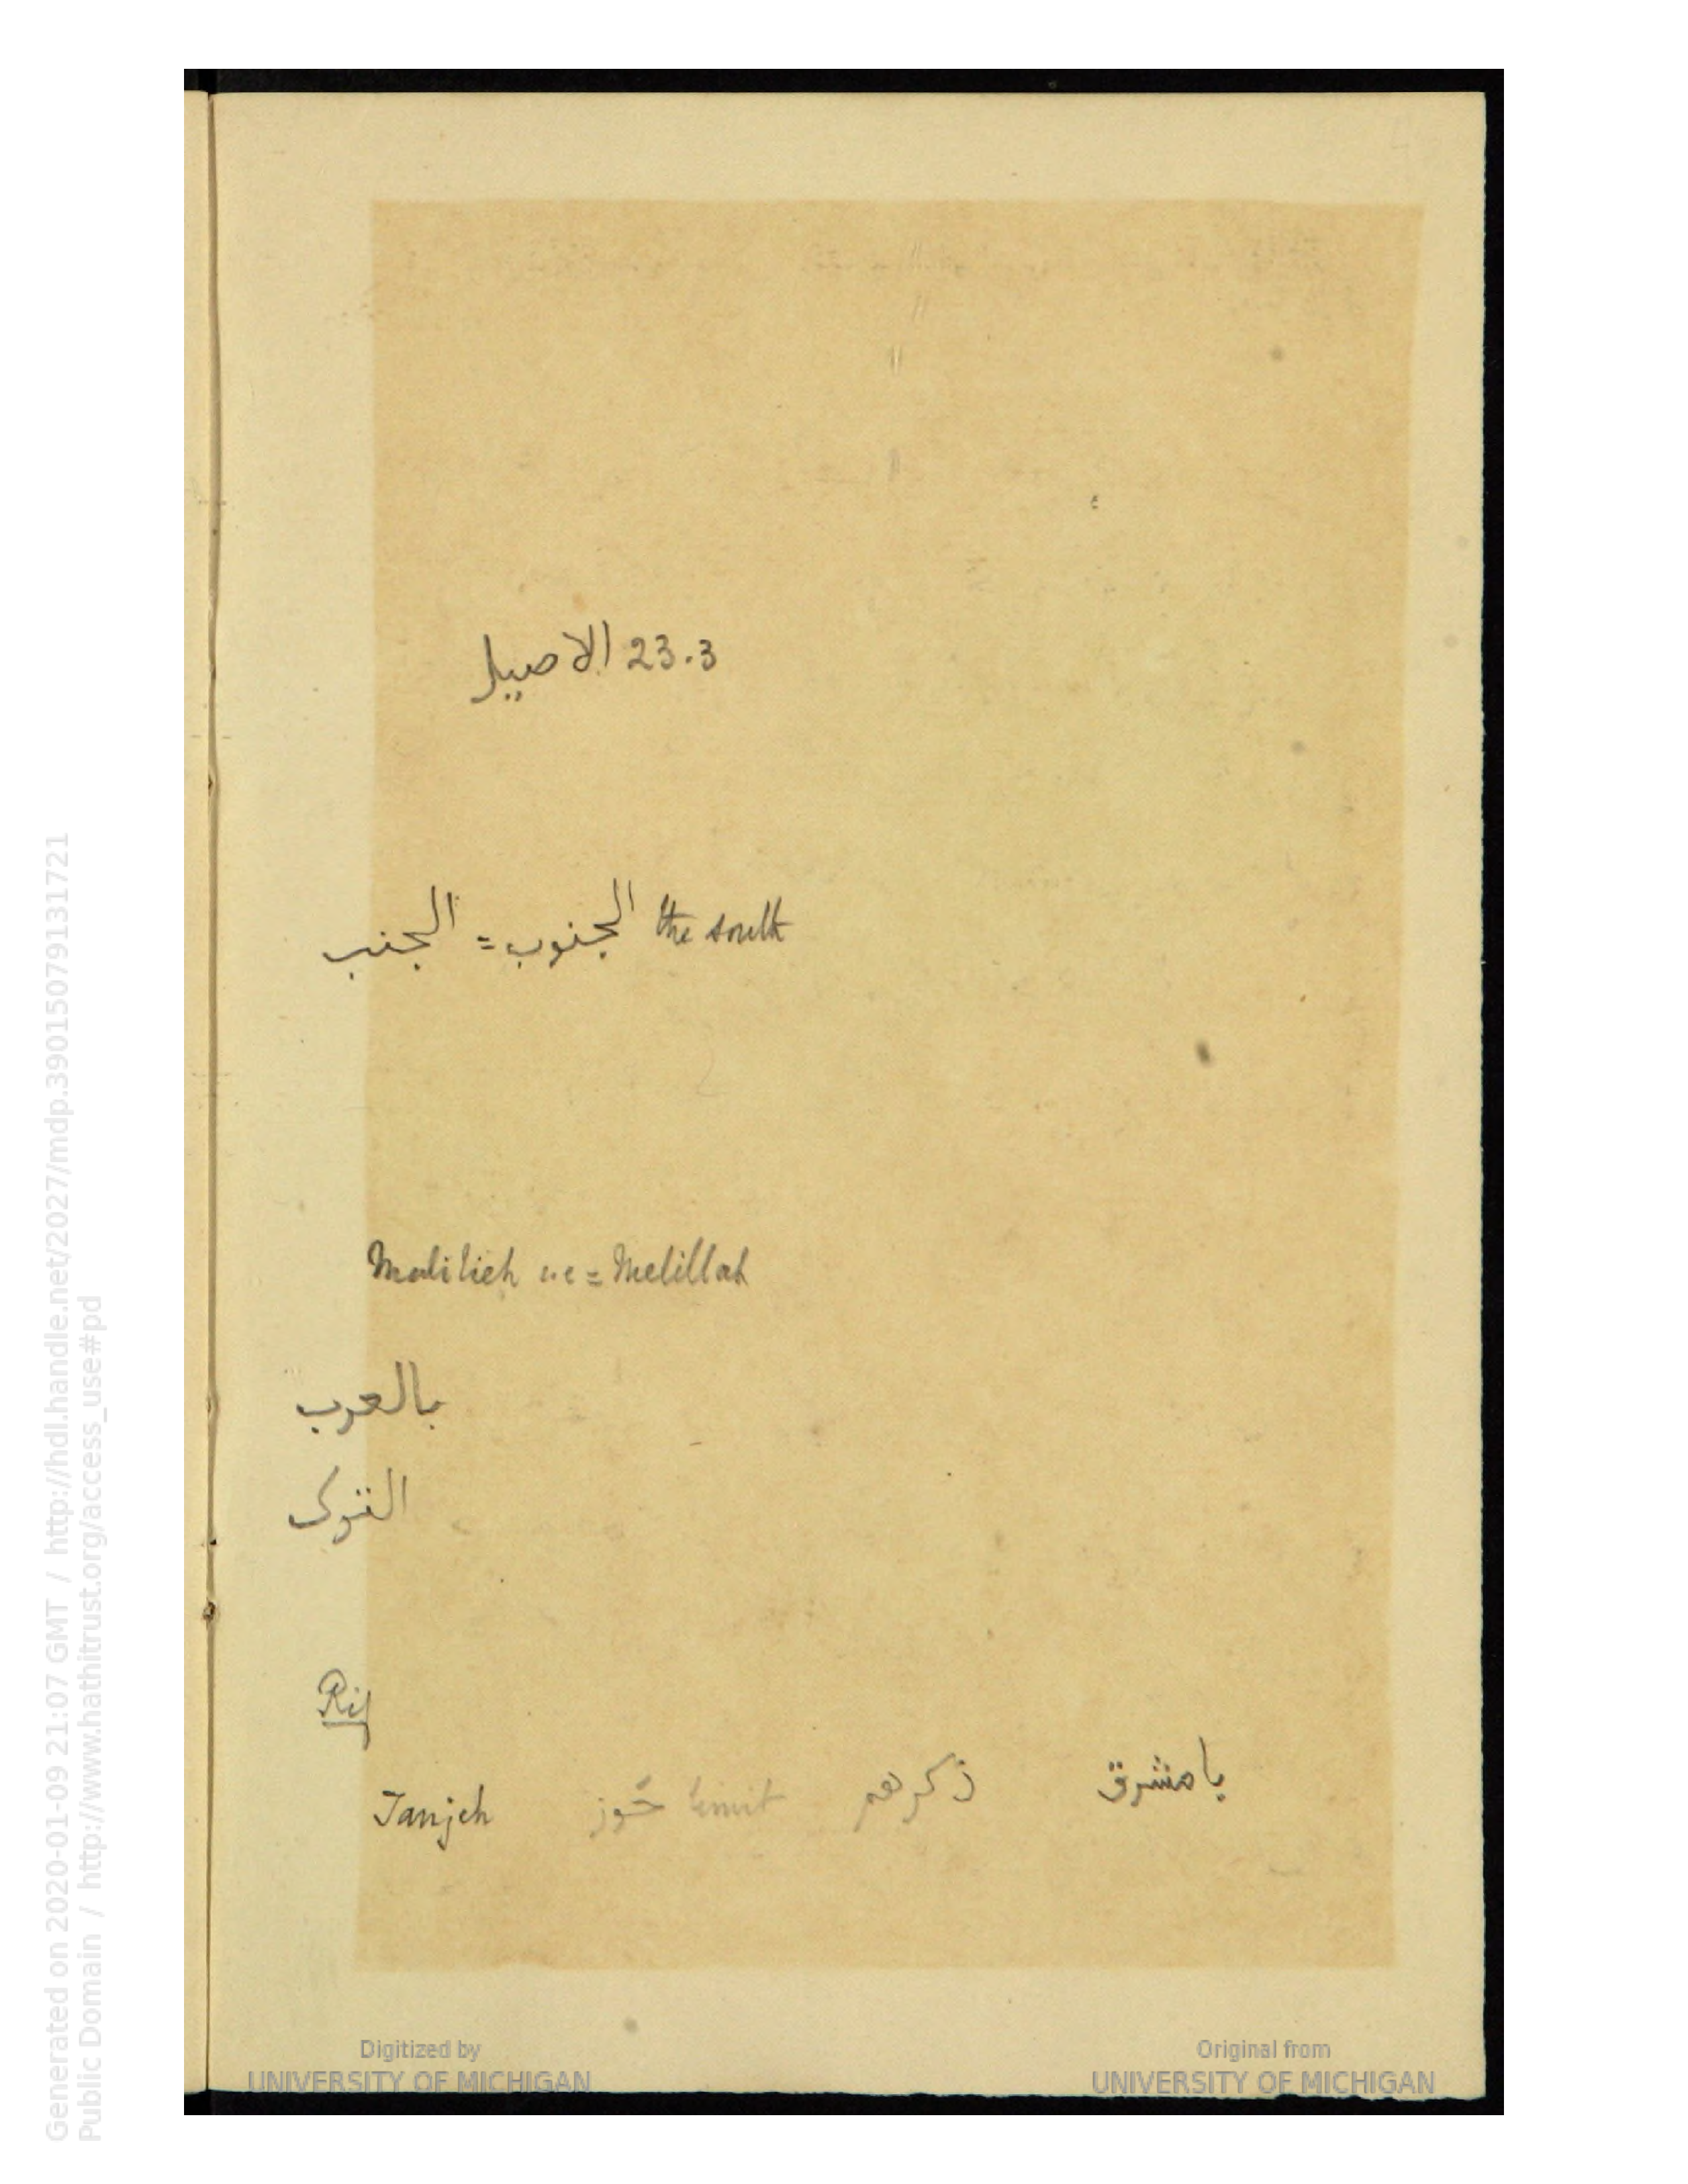 23.3 الاصيل
the south الجنوب = الجنب
Malilieh = Melillah
بالعرب
الترك
Rif
Tanjeh حَوز limit ذكرهم بامشرق
Digitized by
UNIVERSITY OF MICHIGAN
Original from
UNIVERSITY OF MICHIGAN
Generated on 2020-01-09 21:07 GMT / http://hdl.handle.net/2027/mdp.39015079131721
Public Domain / http://www.hathitrust.org/access_use#pd